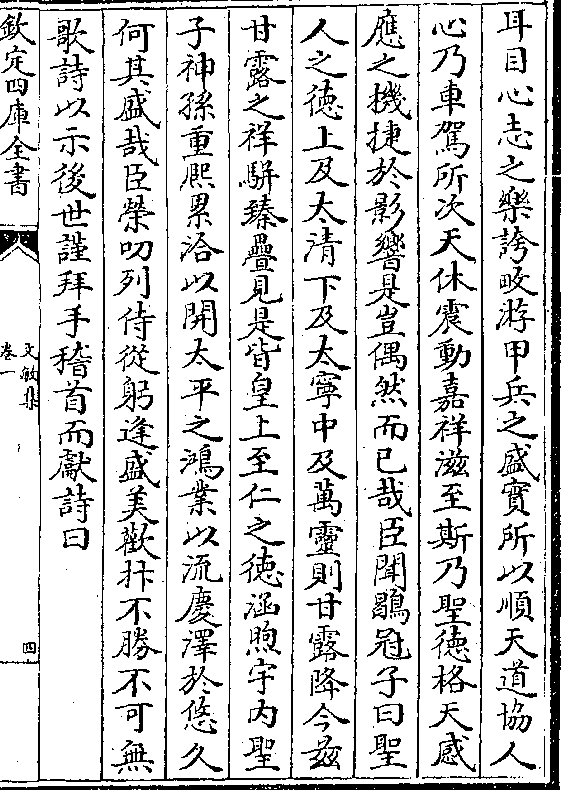 耳目心志之樂誇畋游甲兵之盛實所以順天道協人
心乃車駕所次天休震動嘉祥滋至斯乃聖德格天感
應之機捷於影響是豈偶然而已哉臣聞鶡冠子曰聖
人之德上及太清下及太寧中及萬靈則甘露降今兹
甘露之祥駢臻疊見是皆皇上至仁之德涵煦宇内聖
子神孫重熙累洽以開太平之鴻業以流慶澤於悠久
何其盛哉臣榮叨列侍從躬逢盛美歡抃不勝不可無
歌詩以示後世謹拜手稽首而獻詩曰
欽定四庫全書
文敏集
卷一
四